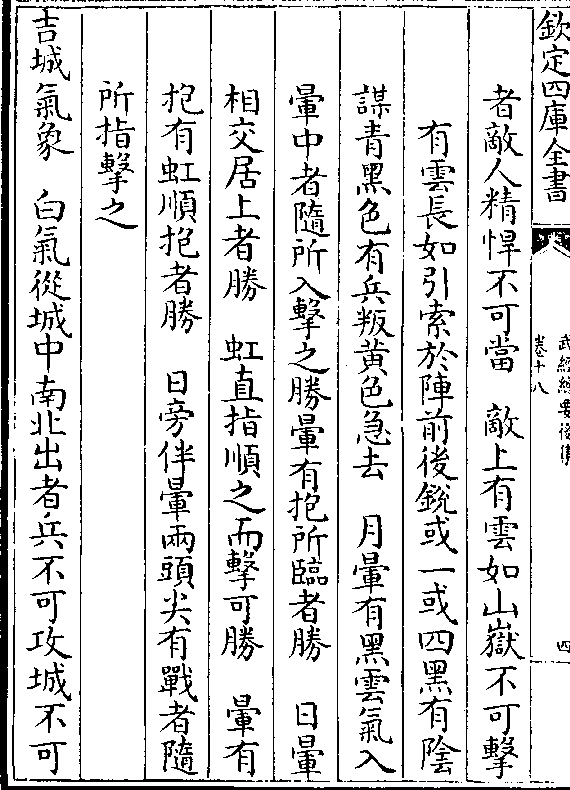 欽定四庫全書
武經總要後集
卷十八
四
者敵人精悍不可當　敵上有雲如山嶽不可擊
有雲長如引索於陣前後銳或一或四黑有陰
謀青黑色有兵叛黃色急去　月暈有黑雲氣入
暈中者隨所入擊之勝暈有抱所臨者勝　日暈
相交居上者勝　虹直指順之而擊可勝　暈有
抱有虹順抱者勝　日旁伴暈兩頭尖有戰者隨
所指擊之
吉城氣象　白氣從城中南北出者兵不可攻城不可